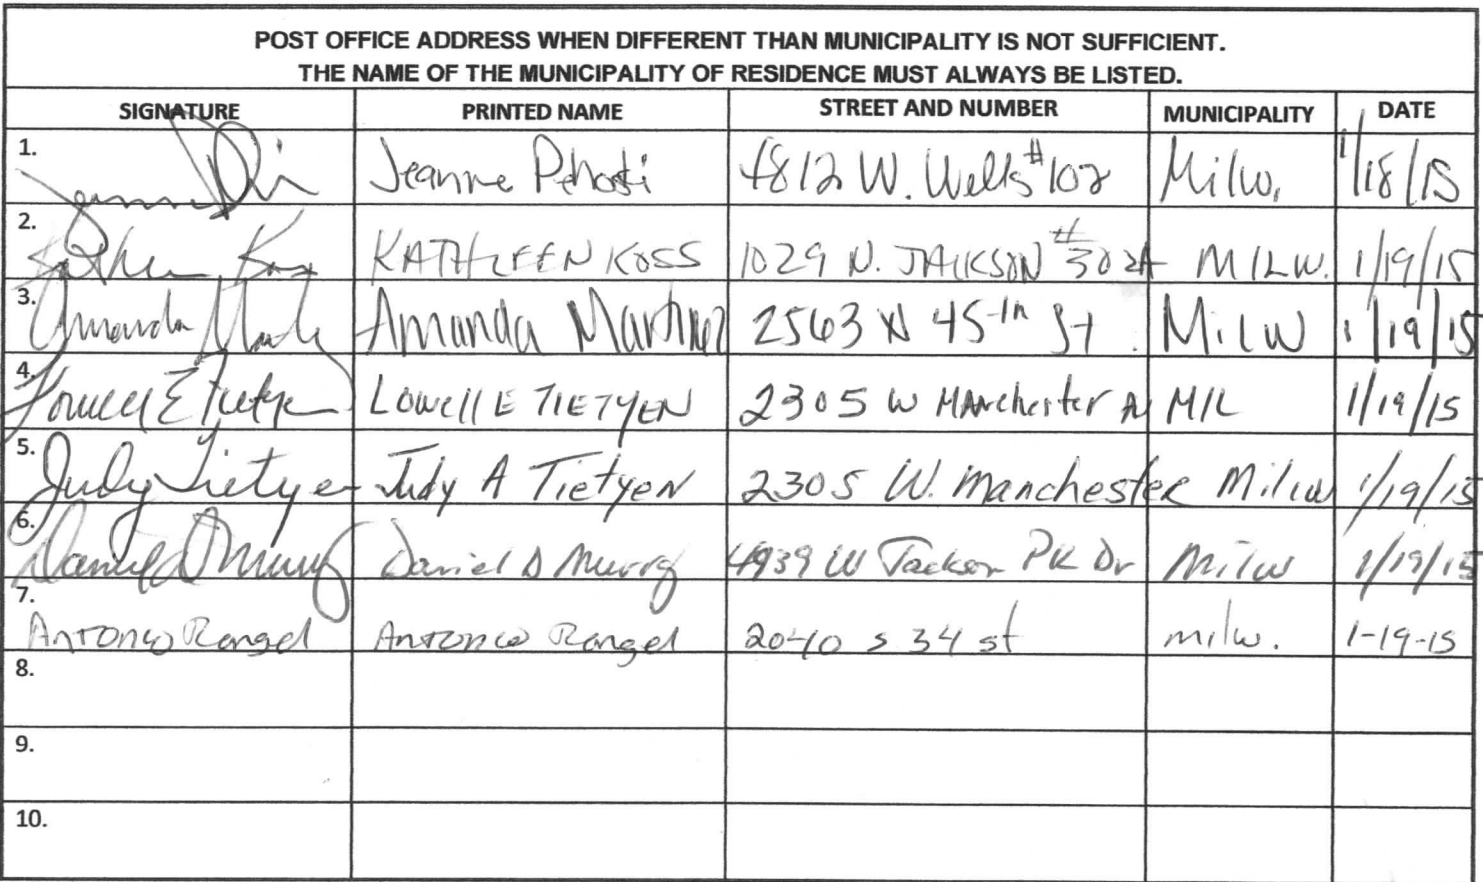 POST OFFICE ADDRESS WHEN DIFFERENT THAN MUNICIPALITY IS NOT SUFFICIENT.
THE NAME OF THE MUNICIPALITY OF RESIDENCE MUST ALWAYS BE LISTED.
SIGNATURE PRINTED NAME STREET AND NUMBER MUNICIPALITY DATE
1. Jeanne 4812 W. Wells #102 Milw. 1/18/15
2. Kathleen Koss KATHLEEN KOSS 1029 N. JACKSON #302A MILW. 1/19/15
3. Amanda Amanda Martinez 2563 N 45th St. Milw 1/19/15
4. Lowell E Tietyen Lowell E TIETYEN 2305 W MANchester Av MIL 1/19/15
5. Judy Tietyen Judy A Tietyen 2305 W. Manchester Milw 1/19/15
6. Daniel D Murry Daniel D Murry 4939 W Jackson PK Dr Milw 1/19/15
7. Antonio Rangel Antonio Rangel 2040 S 34 st milw. 1-19-15
8.
9.
10.